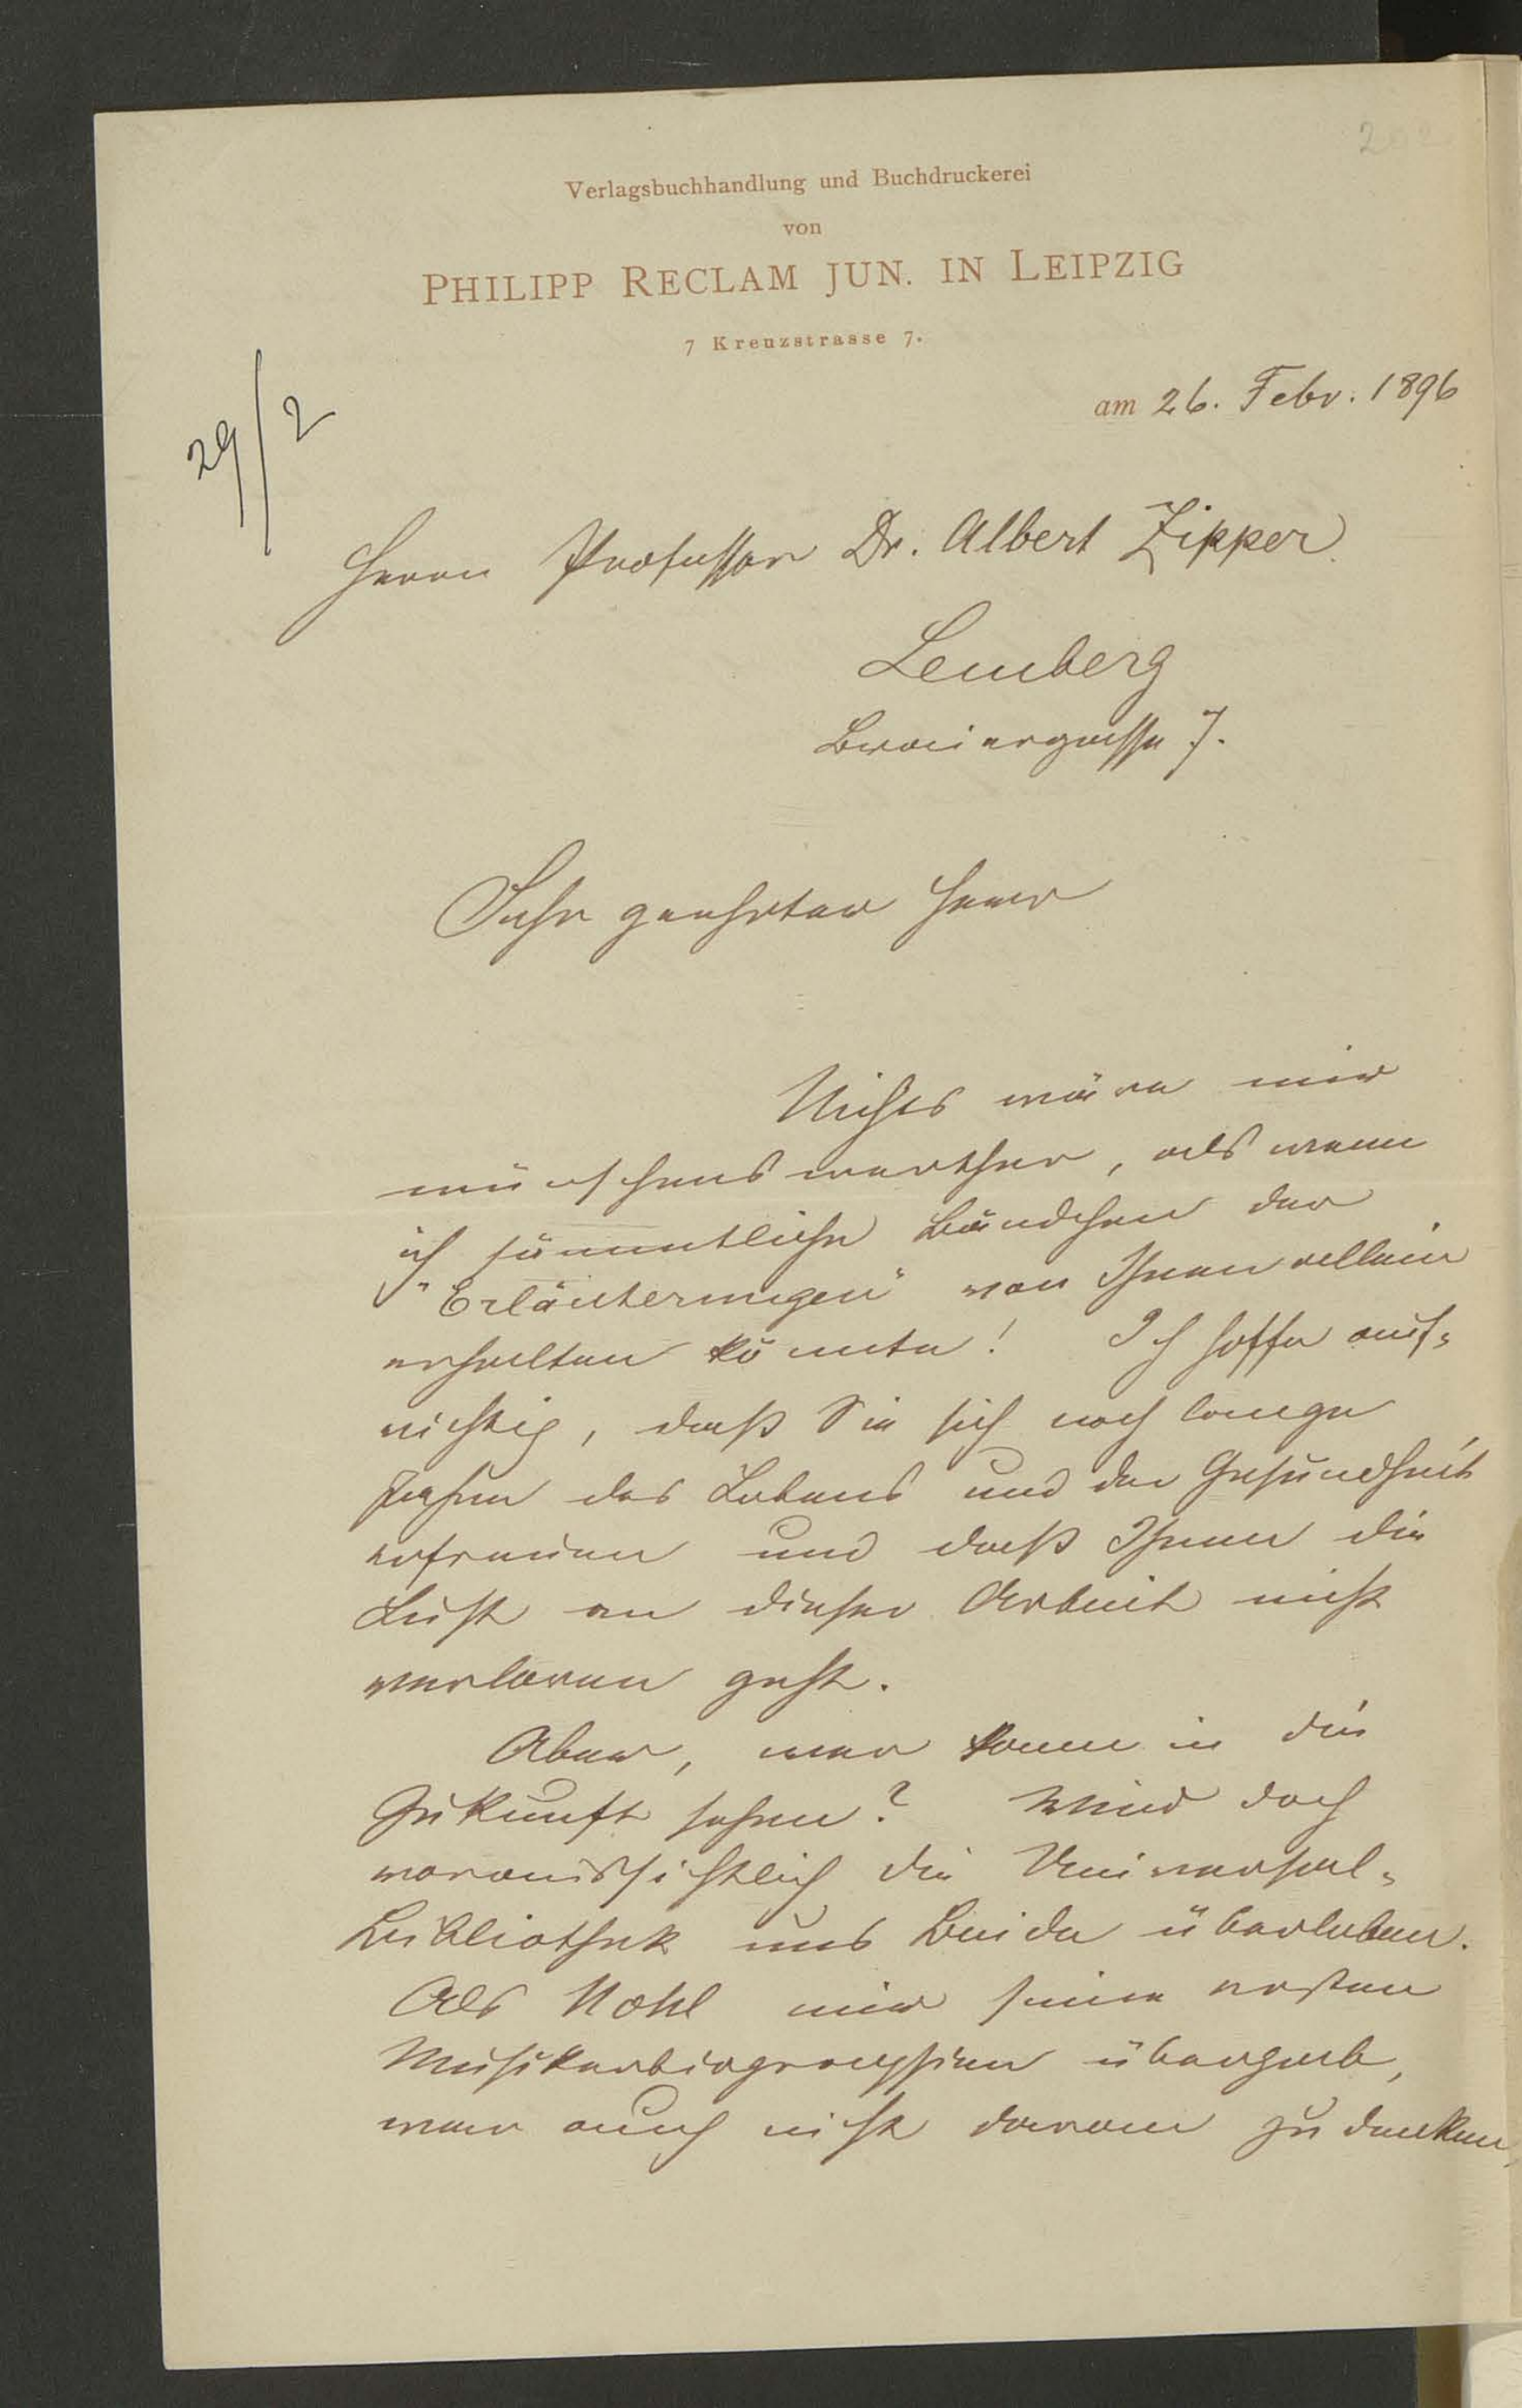 202
Verlagsbuchhandlung und Buchdruckerei
von
PHILIPP RECLAM JUN. IN LEIPZIG
7 Kreuzstrasse 7.
am 26. Febr. 1896
29/2
Herrn Professor Dr. Albert Zipper
Lemberg
7.
Sehr geehrter Herr
Nichts wäre mir
wünschenswerther, als wenn
ich sämmtliche Bändchen der
"Erläuterungen" von Ihnen allein
erhalten könnte! Ich hoffe auf-
richtig, daß Sie sich noch lange
Jahre des Lebens und der Gesundheit
erfreuen und daß Ihnen die
Lust an dieser Arbeit nicht
verloren geht.
Aber, wer kann in die
Zukunft sehen? Wird doch
voraussichtlich die Universal-
Bibliothek uns Beide überleben.
Als Nohl mir seine ersten
Musikerbiographien übergab,
war auch nicht daran zu denken,